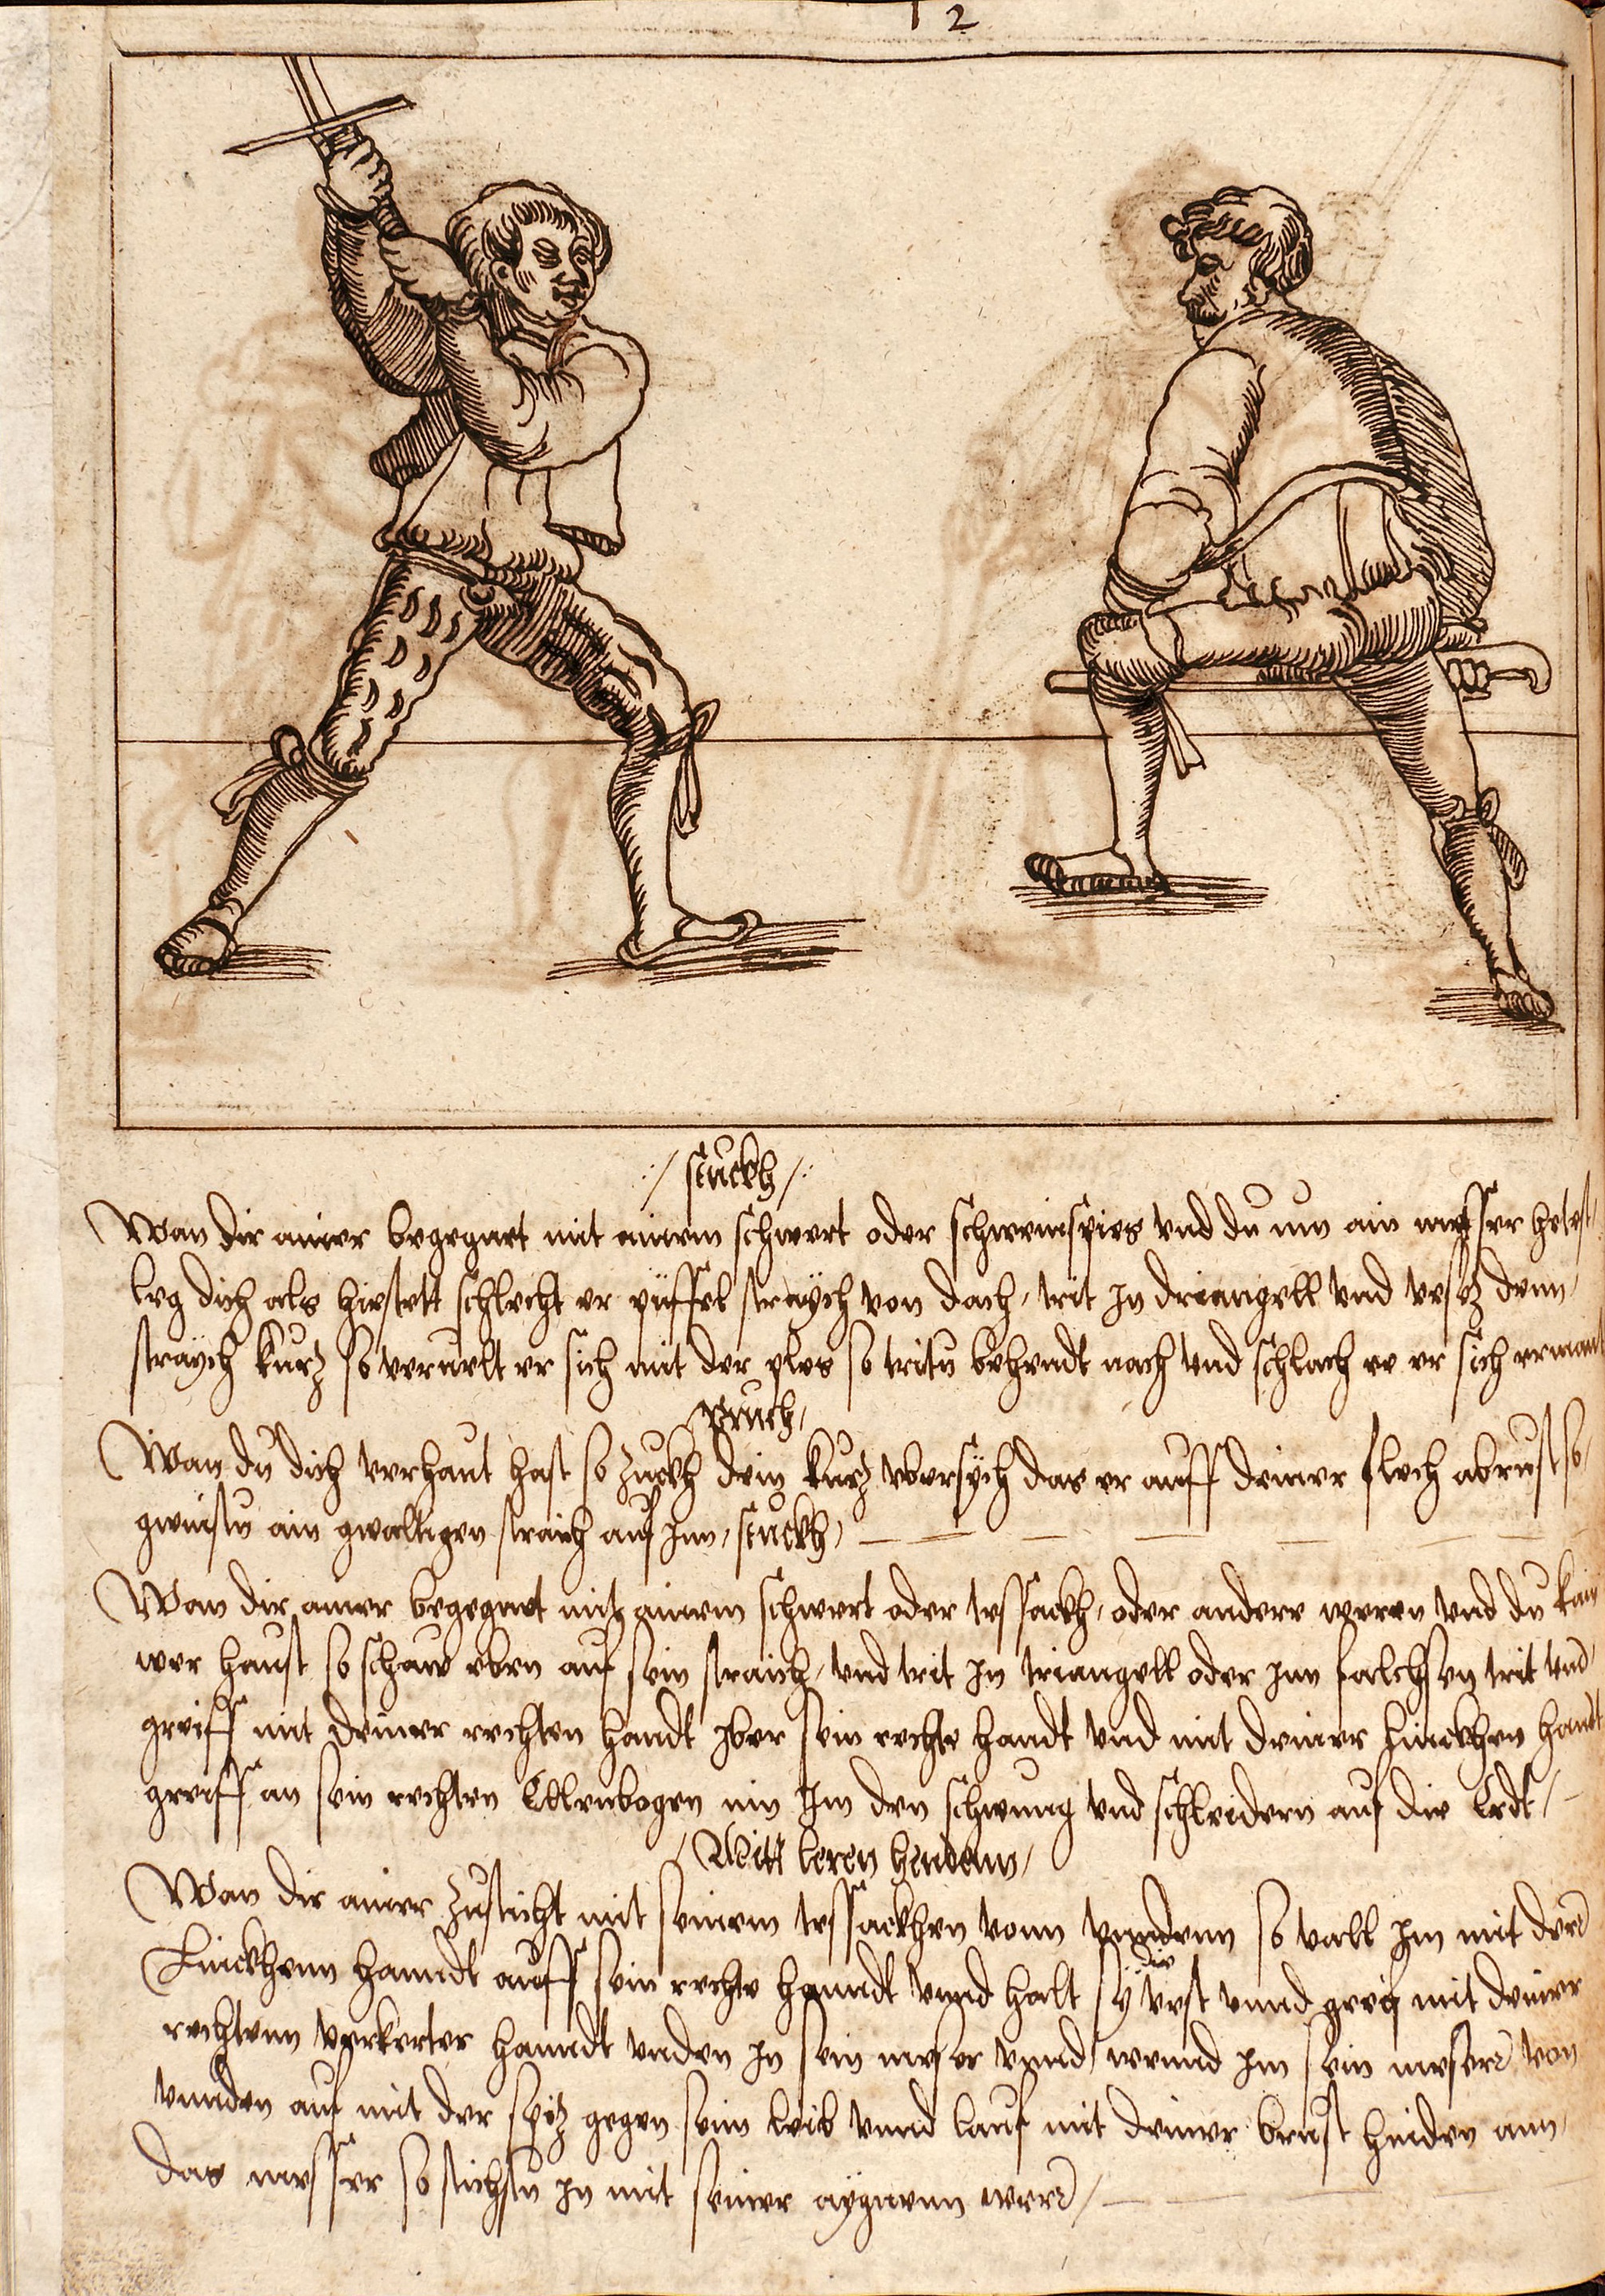 12
stuckh
Wan dir ainer begegnet mit ainem schwert oder schweinspies vnd du nun ain messer hetest
leg dich als hiestett schlecht er püffel straych von dach, trit In driangell vnd vesez denn
straych kurz so veruelt er sich mit der ples so tritu behendt nach vnd schlach ee er sich ermant
pruch,
Wan du dich verhaut hast so zuckh dein kurz vbersych das er auff deiner flech abrust so
gwinstu ain gwaltigen straich auf Inn, stuckh,
Wan dir ainer begegnet mit ainem schwert oder tessackh, oder andere weren vnd du kain
wer haust so schaw eben auf sein straich, vnd trit In triangell oder Inn falchsen trit vnd
greiff mit deiner rechten handt Iber sein rechte handt vnd mit deiner Linckhen handt
greiff an sein rechten Ellenbogen nin Im den schwung vnd schleidern auf die Erdt,
Mitt leren henden,
Wan dir ainer zusticht mit seinem tessackhen vonn vnndenn so vall Im mit der
die
Linckhenn hanndt auff sein rechte hanndt vnnd halt sy vest vnnd greif mit deiner
rechtenn verkerter hanndt vnden In sein messer vnnd wennd Im sein messer von
vnnden auf mit der spiz gegen seim leib vnnd lauf mit deiner brust hinden ann
das messer so stichstu In mit seiner aygnenn weer,